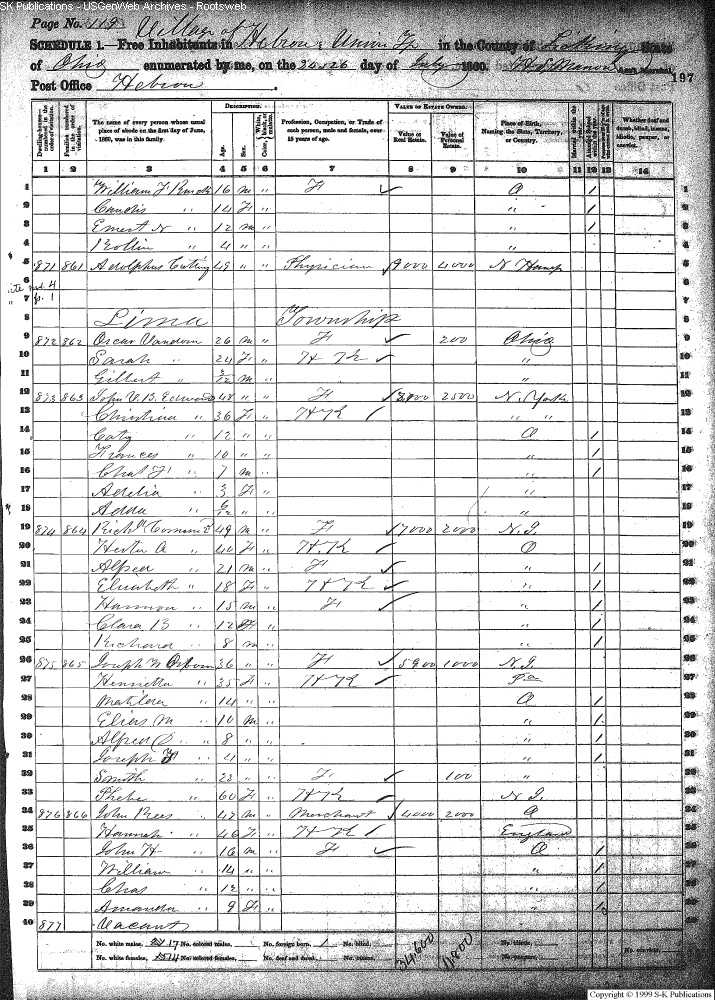 SK Publications - USGenWeb Archives - Rootsweb
Page No. 119 Village of
SCHEDULE 1.—Free Inhabitants in Hebron & Union Tp in the County of Licking State
of Ohio enumerated by me, on the 25 & 26 day of July 1860. Ass't Marshal.
197
Post Office Hebron.
Dwelling-houses—numbered in the order of visitation. Families numbered in the order of visitation. The name of every person whose usual place of abode on the first day of June, 1860, was in this family. DESCRIPTION. Age. Sex. Color, White, black, or mulatto. Profession, Occupation, or Trade of each person, male and female, over 15 years of age. VALUE OF ESTATE OWNED. Value of Real Estate. Value of Personal Estate. Place of Birth, Naming the State, Territory, or Country. Whether deaf and dumb, blind, insane, idiotic, pauper, or convict.
1 2 3 4 5 6 7 8 9 10 11 12 13 14
1 William F 16 m " F ✓ O / 1
2 " 14 F " " / 2
3 Emert N " 12 m " " / 3
4 Rollin " 4 " " " 4
5 871 861 Adolphus 49 " " Physician 9000 4000 N Hamp 5
6
7
8 Lima Township 8
9 872 862 Oscar Vandorn 26 m " F ✓ 200 Ohio 9
10 Sarah " 24 F " H K ✓ " 10
11 Gilbert " 3/12 m " " 11
12 873 863 John V. B. Edwards 48 " " F 8700 2500 N. York 12
13 Christina " 36 F " H K / " " 13
14 Caty " 12 " " O / 14
15 Frances " 10 " " " / 15
16 Chas F " 7 m " " / 16
17 Adelia " 3 F " " 17
18 Adda " 6/12 " " " 18
19 874 864 Rich'd 49 m " F 7000 2000 N. J. 19
20 Hester A " 40 F " H. K ✓ O 20
21 Alfred " 21 m " F ✓ " / 21
22 Elizabeth " 18 F " H K ✓ " / 22
23 Harmon " 15 m " F ✓ " / 23
24 Clara B " 12 F " " / 24
25 Richard " 8 m " " / 25
26 875 865 Joseph W Osborn 36 " " F ✓ 5900 1000 N. J. 26
27 Henrietta " 35 F " H K ✓ Pa 27
28 Matilda " 14 " " O / 28
29 Elias M " 10 m " " / 29
30 Alfred O " 8 " " " / 30
31 Joseph F " 4 " " " / 31
32 Smith " 23 " " F ✓ 100 " 32
33 Phebe " 60 F " H K N J 33
34 876 866 John Rees 47 m " Merchant 4000 2000 O 34
35 Hannah " 46 F " H K / England 35
36 John H " 16 m " F ✓ O / 36
37 William " 14 " " " / 37
38 Chas " 12 " " " / 38
39 Amanda " 9 F " " / 39
40 877 Vacant 40
No. white males, 17 No. colored males, No. foreign born, 1 No. blind, 34600 11800 No. idiotic, No. convicts,
No. white females, 14 No. colored females, No. deaf and dumb, No. insane, No. paupers,
Copyright © 1999 S-K Publications